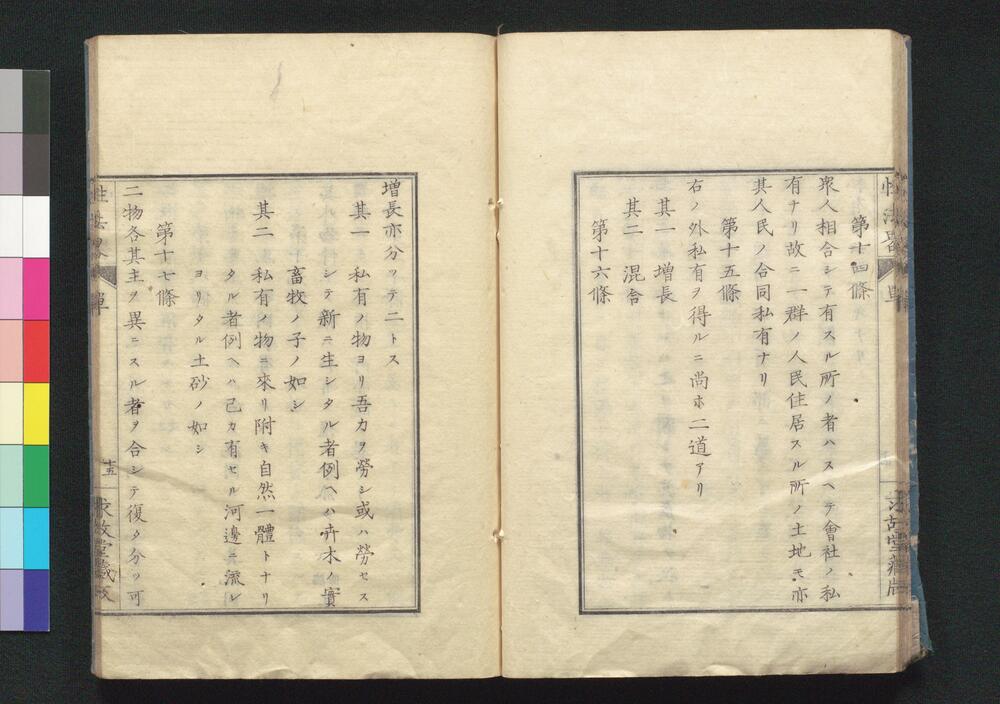 性法畧 單
第十四條
衆人相合シテ有スル所ノ者ハスヘテ會社ノ私
有ナリ故ニ一群ノ人民住居スル所ノ土地モ亦
其人民ノ合同私有ナリ
第十五條
右ノ外私有ヲ得ルニ尚ホ二道アリ
其一 增長
其二 混合
第十六條
增長亦分ツテ二トス
其一 私有ノ物ヨリ吾力ヲ勞シ或ハ勞セス
シテ新ニ生シタル者例ヘハ卉木ノ實
畜牧ノ子ノ如シ
其二 私有ノ物ニ來リ附キ自然一體トナリ
タル者例ヘハ己カ有セル河邊ニ流レ
ヨリタル土砂ノ如シ
第十七條
二物各其主ヲ異ニスル者ヲ合シテ復タ分ツ可
性法畧 單
十五